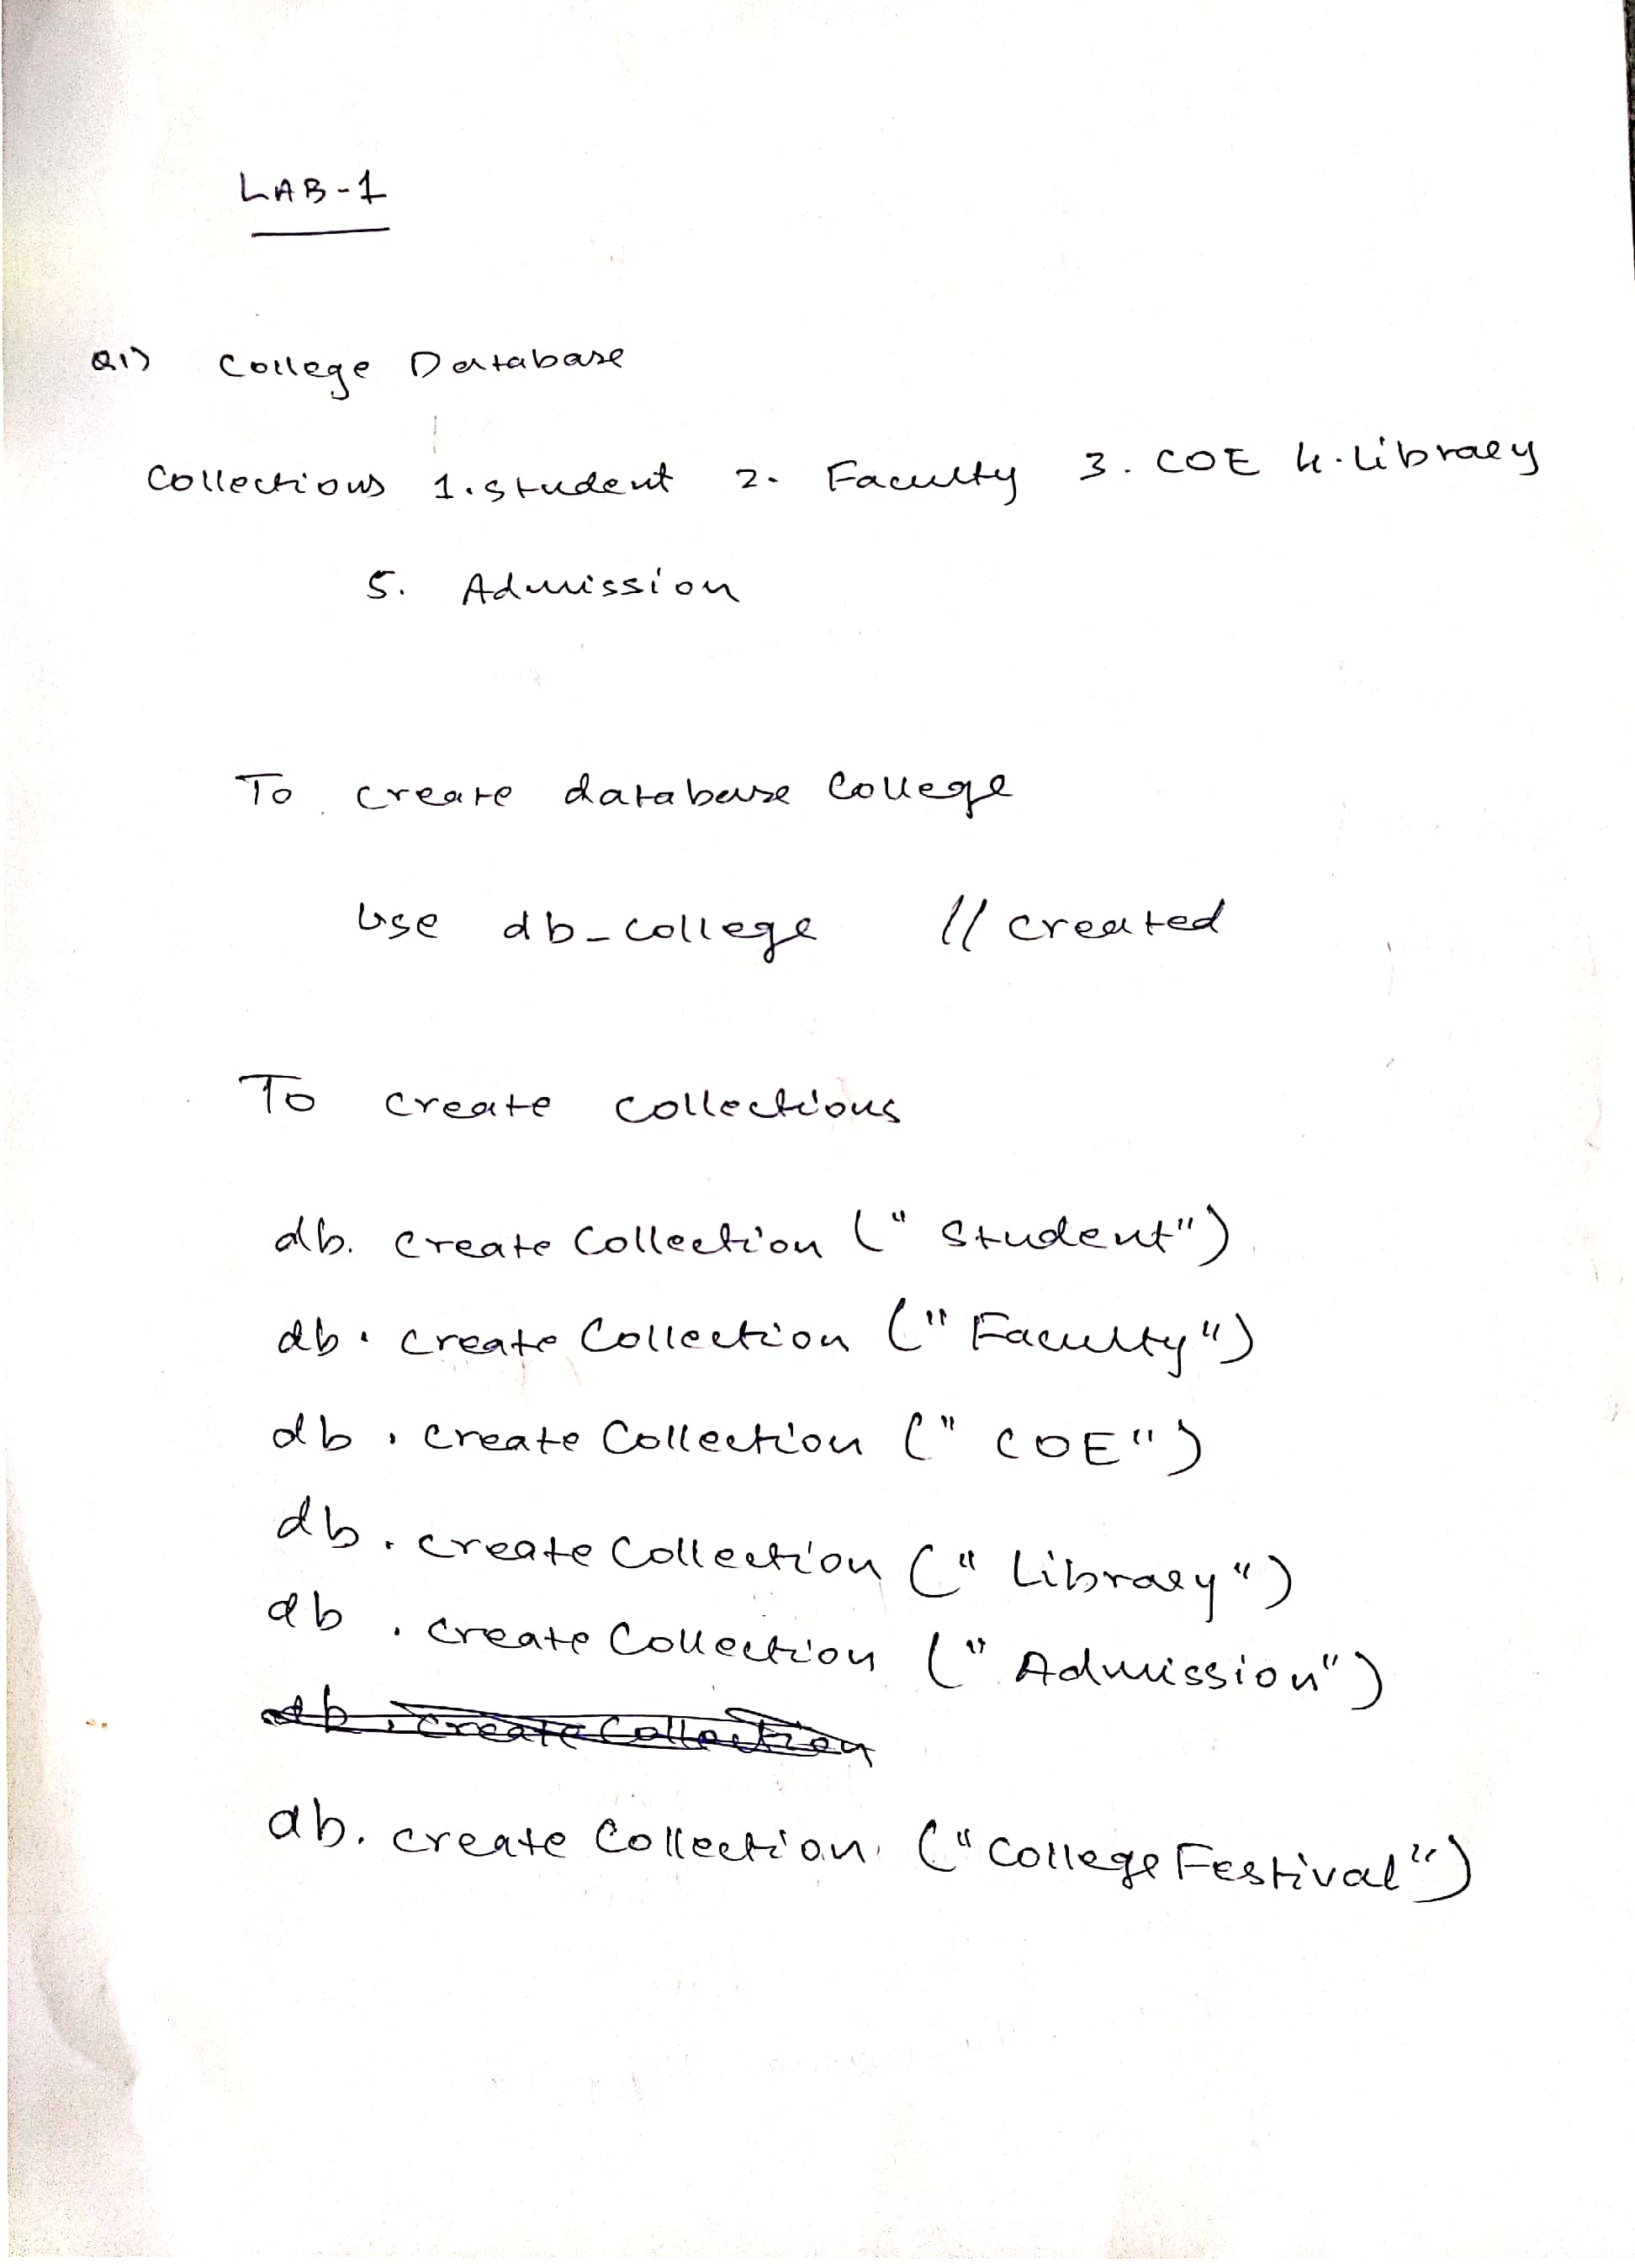 LAB-1
Q1) College Database
Collections 1. Student 2. Faculty 3. COE 4. Library
5. Admission
To create database College
Use db_college // created
To create collections
db. create Collection ("Student")
db. create Collection ("Faculty")
db. create Collection ("COE")
db. create Collection ("Library")
db. create Collection ("Admission")
db. create Collection
db. create Collection ("College Festival")